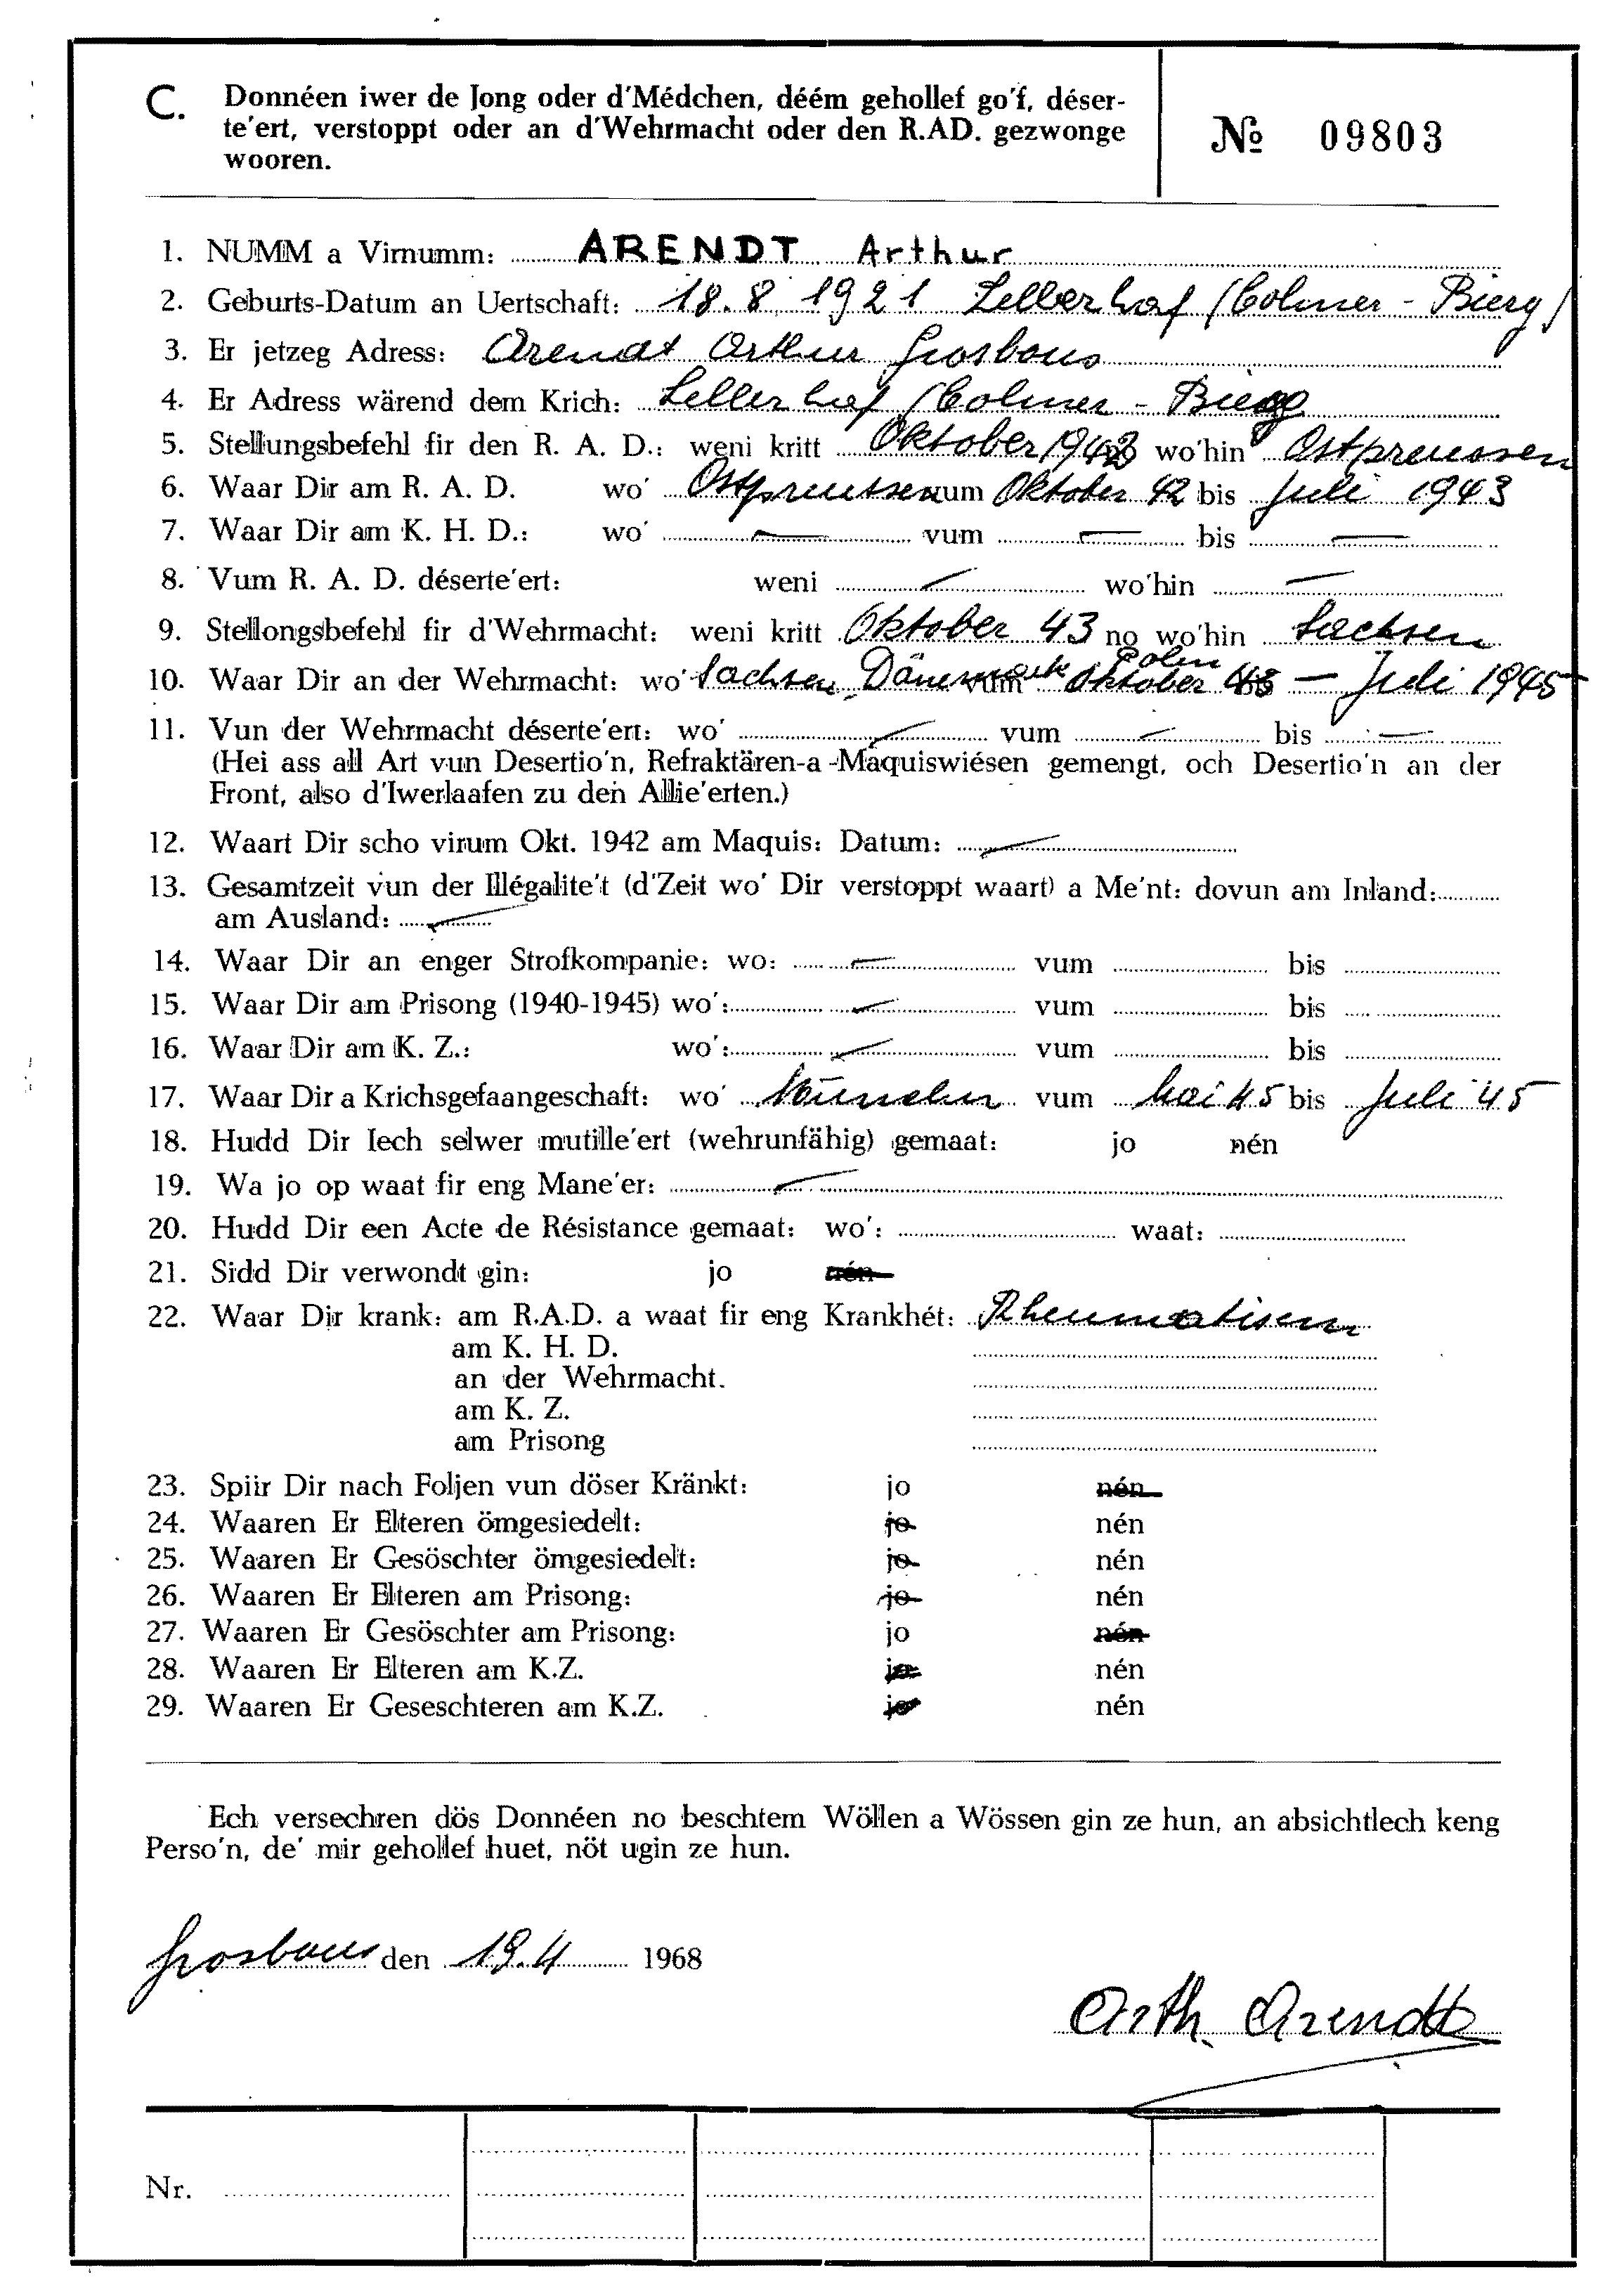 C. Donnéen iwer de Jong oder d'Médchen, déém gehollef go'f, déser-
te'ert, verstoppt oder an d'Wehrmacht oder den R.AD. gezwonge
wooren.
№ 09803
1. NUMM a Virnumm: ARENDT Arthur
2. Geburts-Datum an Uertschaft: 18.8.1921 Lellerhof (Colmer-Bierg)
3. Er jetzeg Adress: Arendt Arthur Grosbous
4. Er Adress wärend dem Krich: Lellerhof (Colmer-Bierg
5. Stellungsbefehl fir den R. A. D.: weni kritt Oktober 1942 no wo'hin Ostpreussen
6. Waar Dir am R. A. D. wo' Ostpreussen vum Oktober 42 bis Juli 1943
7. Waar Dir am K. H. D.: wo' — vum — bis —
8. Vum R. A. D. déserte'ert: weni — wo'hin —
9. Stellongsbefehl fir d'Wehrmacht: weni kritt Oktober 43 no wo'hin Sachsen
10. Waar Dir an der Wehrmacht: wo' Sachsen, Dänemark Polen vum Oktober 43 bis — Juli 1945
11. Vun der Wehrmacht déserte'ert: wo' — vum — bis —
(Hei ass all Art vun Desertio'n, Refraktären-a -Maquiswiésen gemengt, och Desertio'n an der
Front, also d'Iwerlaafen zu den Allie'erten.)
12. Waart Dir scho virum Okt. 1942 am Maquis: Datum: —
13. Gesamtzeit vun der Illégalite't (d'Zeit wo' Dir verstoppt waart) a Me'nt: dovun am Inland:
am Ausland: —
14. Waar Dir an enger Strofkompanie: wo: — vum bis
15. Waar Dir am Prisong (1940-1945) wo': — vum bis
16. Waar Dir am K. Z.: wo': — vum bis
17. Waar Dir a Krichsgefaangeschaft: wo' München vum Mai 45 bis Juli 45
18. Hudd Dir Iech selwer mutille'ert (wehrunfähig) gemaat: jo nén
19. Wa jo op waat fir eng Mane'er: —
20. Hudd Dir een Acte de Résistance gemaat: wo': waat:
21. Sidd Dir verwondt gin: jo nén
22. Waar Dir krank: am R.A.D. a waat fir eng Krankhét: Rheumatisem
am K. H. D.
an der Wehrmacht.
am K. Z.
am Prisong
23. Spiir Dir nach Foljen vun döser Kränkt: jo nén
24. Waaren Er Elteren ömgesiedelt: jo nén
25. Waaren Er Gesöschter ömgesiedelt: jo nén
26. Waaren Er Elteren am Prisong: jo nén
27. Waaren Er Gesöschter am Prisong: jo nén
28. Waaren Er Elteren am K.Z. jo nén
29. Waaren Er Geseschteren am K.Z. jo nén
Ech versechren dös Donnéen no beschtem Wöllen a Wössen gin ze hun, an absichtlech keng
Perso'n, de' mir gehollef huet, nöt ugin ze hun.
Grosbous den 19.4 1968
Arth. Arendt
Nr.